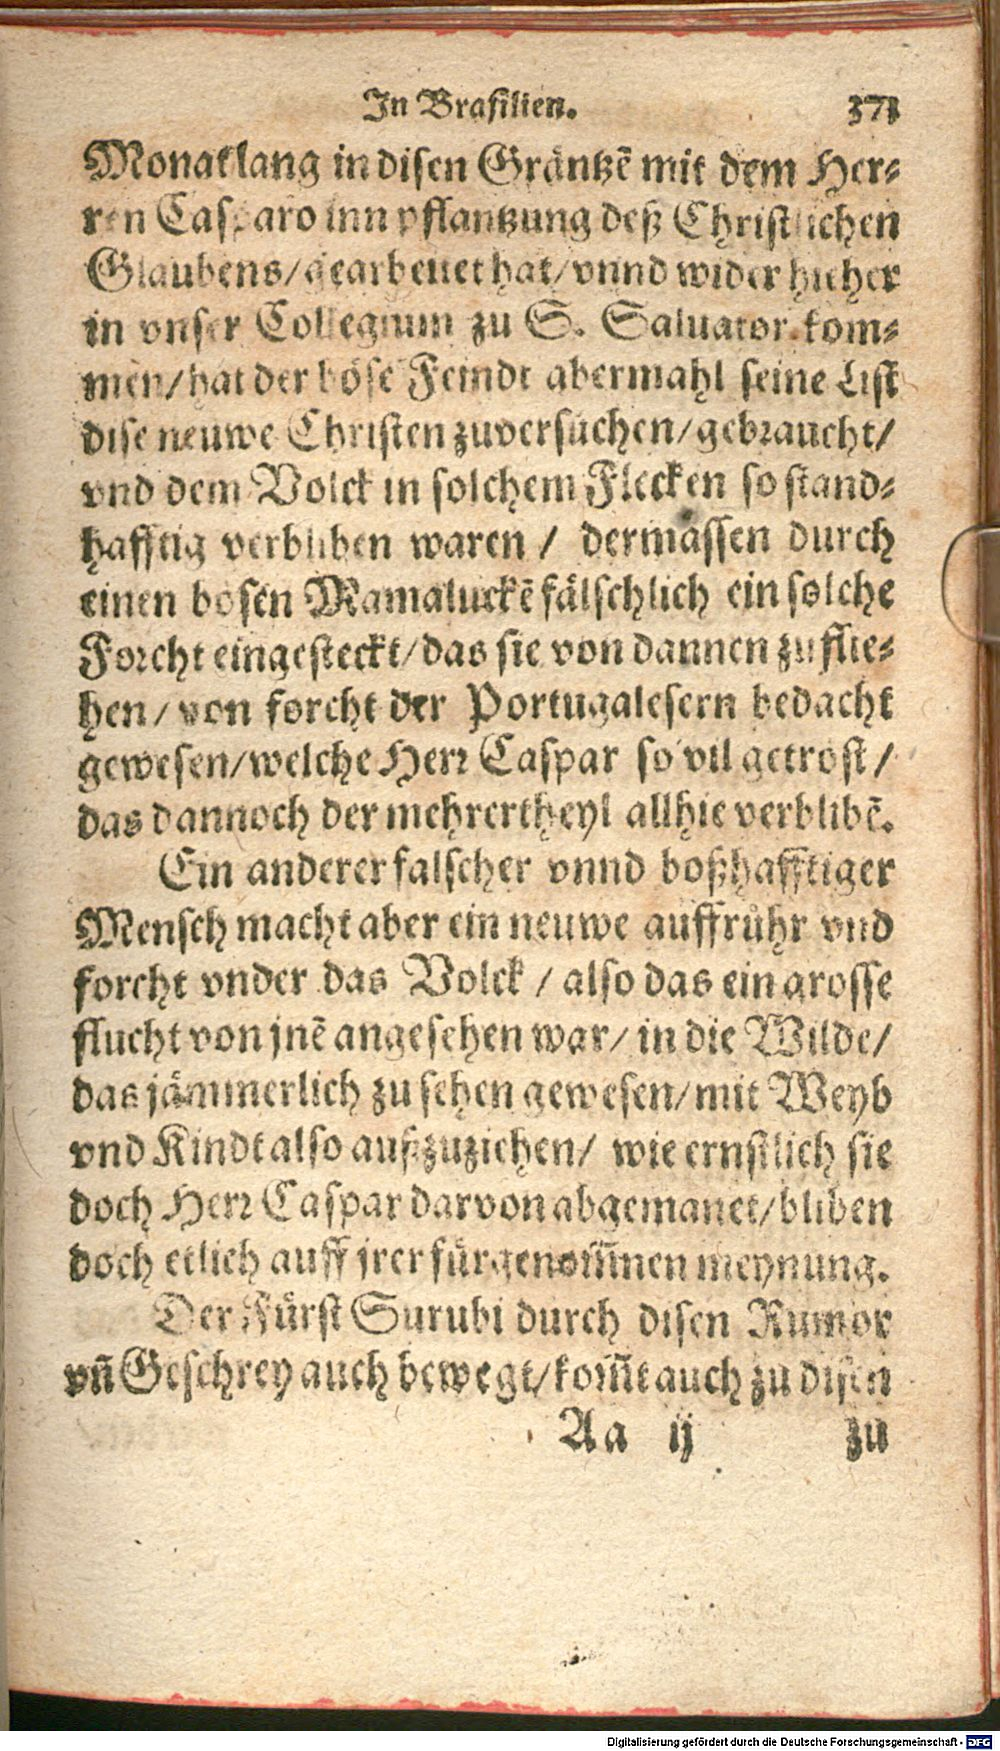 In Brasilien. 371
Monatlang in disen Gräntzẽ mit dem Her-
ren Casparo inn pflantzung deß Christlichen
Glaubens/gearbeitet hat/vnnd wider hieher
in vnser Collegium zu S. Saluator kom-
men/hat der böse Feindt abermahl seine List
dise neuwe Christen zuversuchen/gebraucht/
vnd dem Volck in solchem Flecken so stand-
hafftig verbliben waren / dermassen durch
einen bosen Mamaluckẽ fälschlich ein solche
Forcht eingesteckt/das sie von dannen zu flie-
hen/von forcht der Portugalesern bedacht
gewesen/welche Herr Caspar so vil getrost/
das dannoch der mehrertheyl allhie verblibẽ.
Ein anderer falscher vnnd boßhafftiger
Mensch macht aber ein neuwe auffrůhr vnd
forcht vnder das Volck / also das ein grosse
flucht von jnẽ angesehen war/in die Wilde/
das jämmerlich zu sehen gewesen/mit Weyb
vnd Kindt also außzuziehen/ wie ernstlich sie
doch Herr Caspar darvon abgemanet/bliben
doch etlich auff jrer fürgenom̃nen meynung.
Der Fürst Surubi durch disen Rumor
vñ Geschrey auch bewegt/kom̃t auch zu disen
Aa ij zu
Digitalisierung gefördert durch die Deutsche Forschungsgemeinschaft - DFG